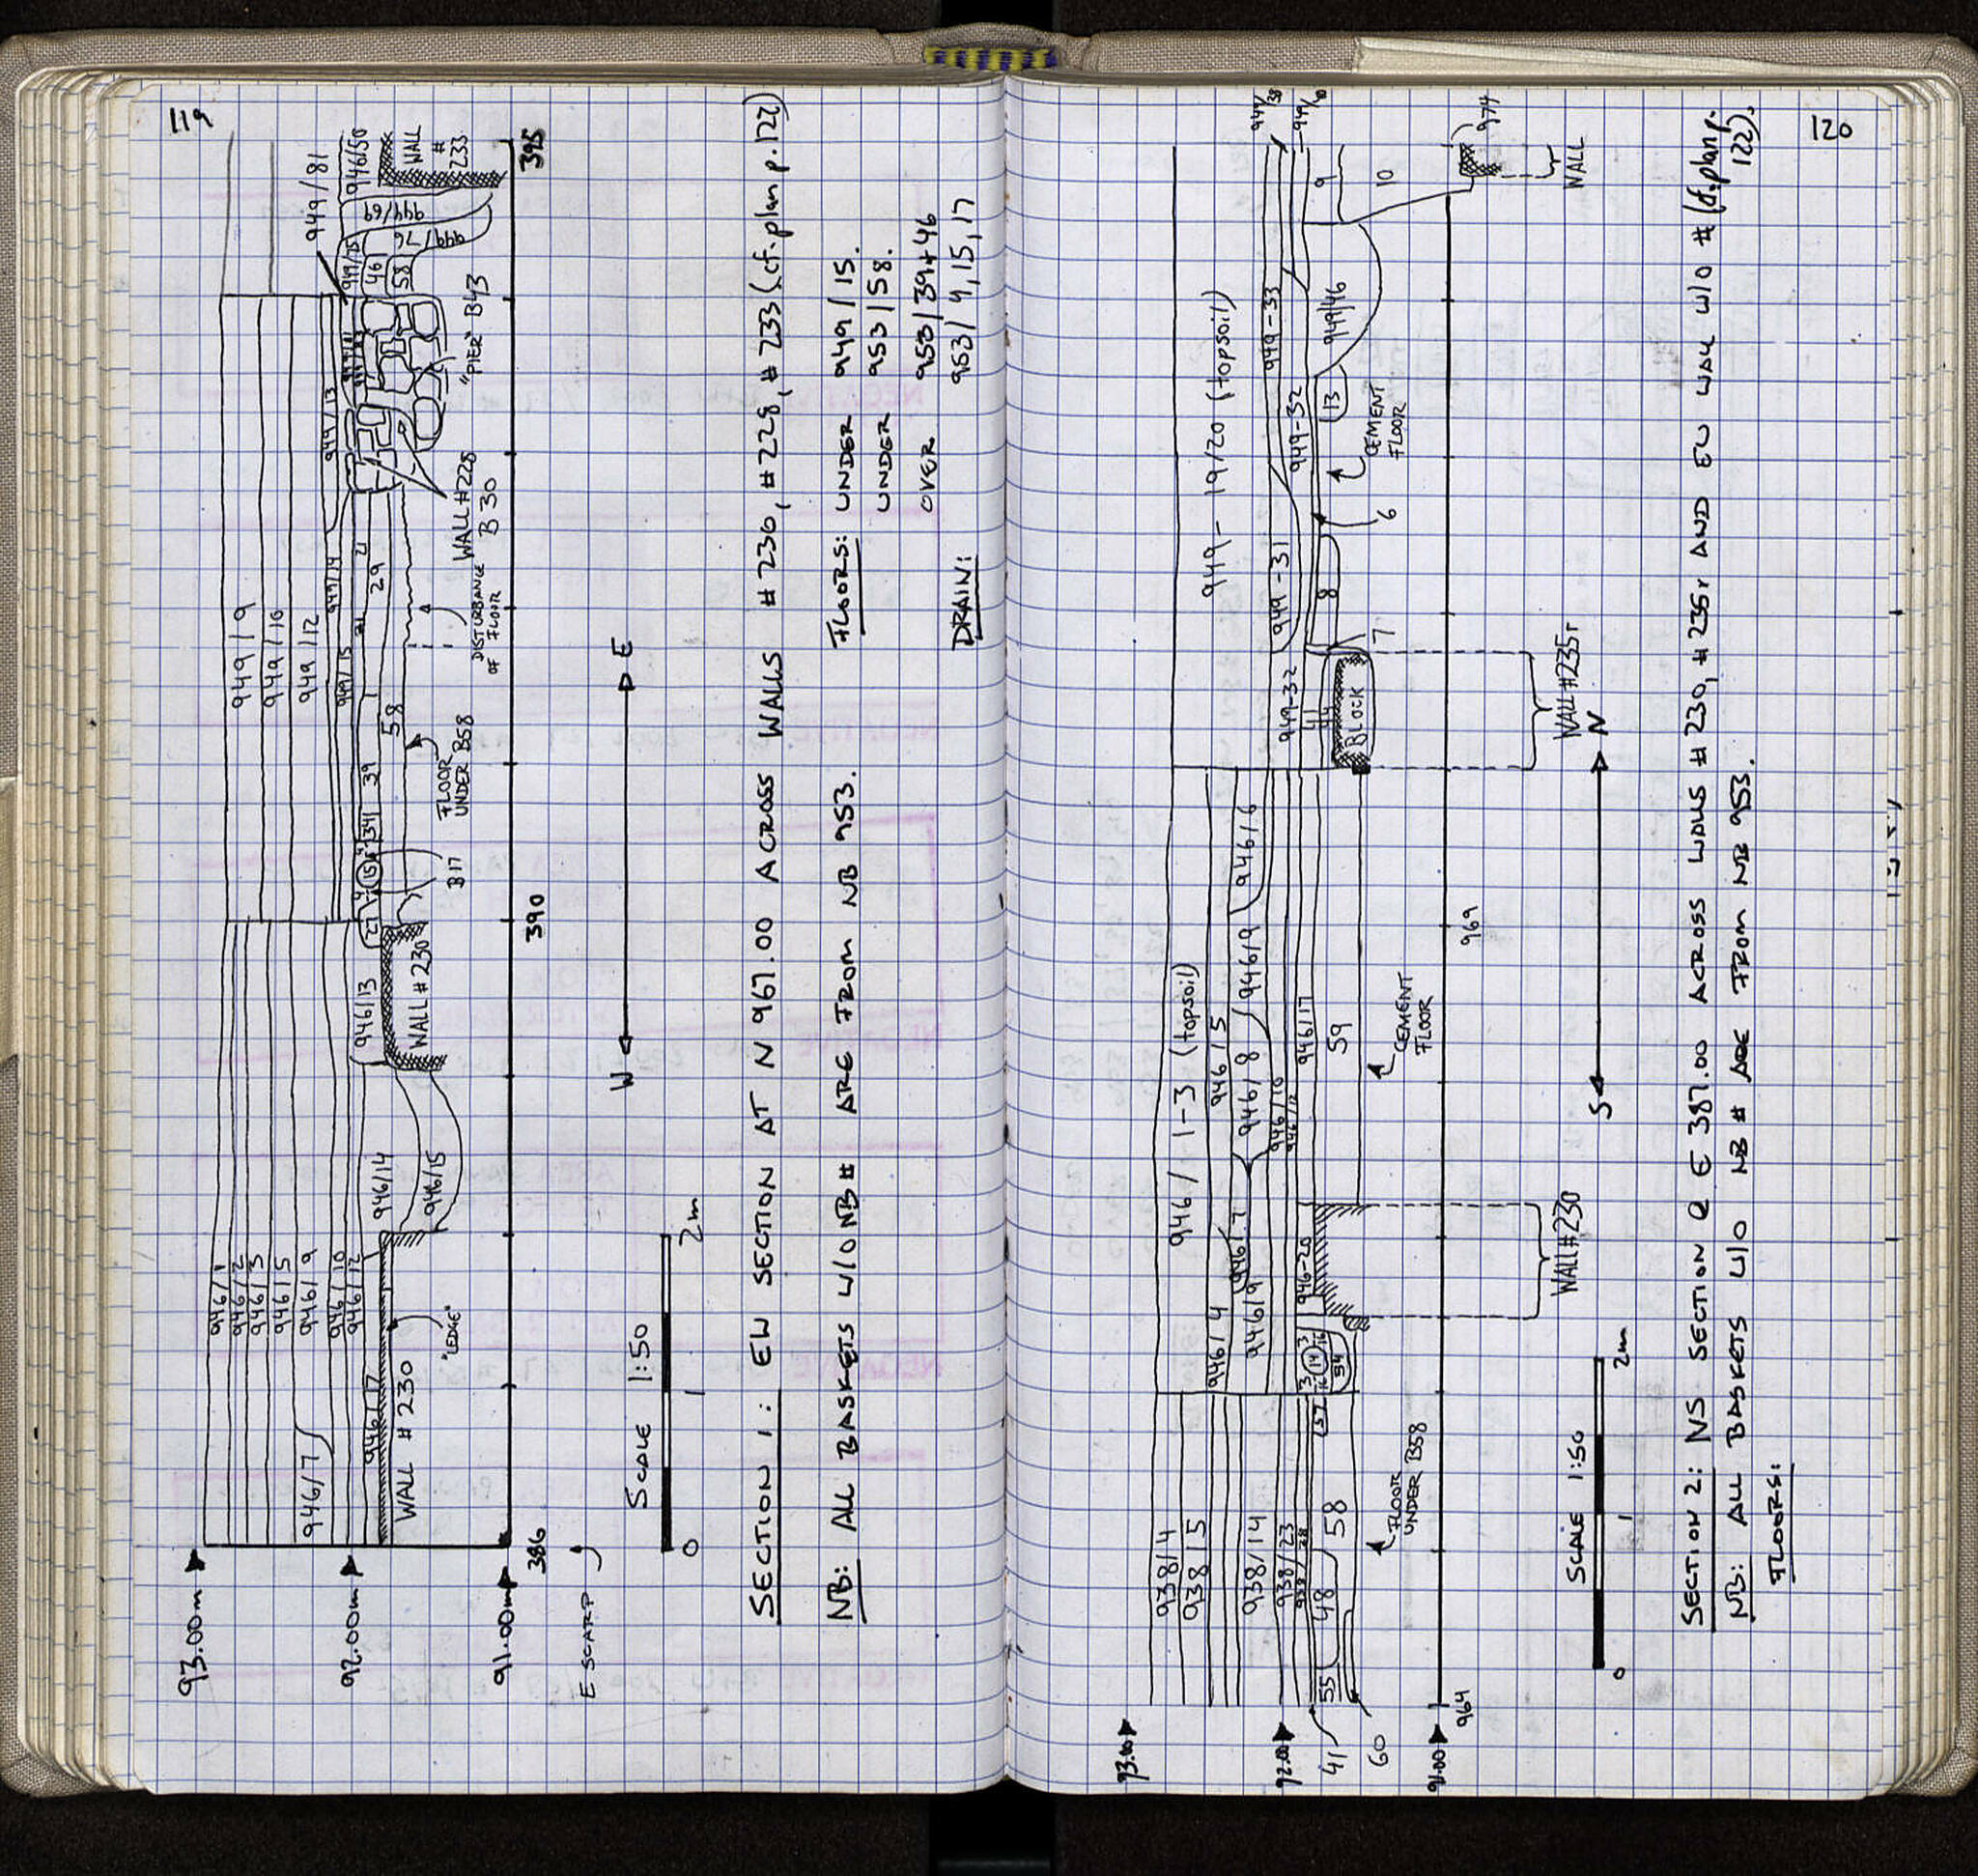 119
949/9
949/10
949/12
949/13
949/14
949/15
21
21
29
58
39
34
15
27
B17
949/81
949/15
46
58
949/76
949/69
946/50
WALL
#
233
"PIER" B43
WALL #228
B 30
DISTURBANCE
OF FLOOR
FLOOR
UNDER B58
946/1
946/2
946/3
946/5
946/9
946/10
946/12
946/7
946/17
946/13
946/14
946/15
WALL #230
WALL #230
"LEDGE"
93.00m
92.00m
91.00m
386
390
395
E SCARP
W
E
SCALE 1:50
0
1
2m
SECTION 1: EW SECTION AT N 967.00 ACROSS WALLS #230, #228, #233 (cf. plan p.122)
NB: ALL BASKETS W/O NB# ARE FROM NB 953.
FLOORS: UNDER 949/15.
UNDER 953/58.
OVER 953/39+46
DRAIN: 953/4,15,17
120
949-19/20 (topsoil)
949/38
949/10
949-33
949-32
949-31
949-32
949/46
9
10
974
WALL
13
CEMENT
FLOOR
6
8
7
44
BLOCK
WALL #235r
946/1-3 (topsoil)
946/5
946/6
946/9
946/8
946/10
946/12
946/17
59
CEMENT
FLOOR
946/7
946/4
946/9
946-20
WALL #230
3
14
3
16
54
57
938/4
938/5
938/14
938/23
938/28
58
48
55
41
60
FLOOR
UNDER B58
93.00
92.00
91.00
964
969
S
N
SCALE 1:50
0
1
2m
SECTION 2: NS SECTION @ E 387.00 ACROSS WALLS #230, #235r AND EW WALL W/O # (cf. plan p.
122).
NB: ALL BASKETS W/O NB # ARE FROM NB 953.
FLOORS: